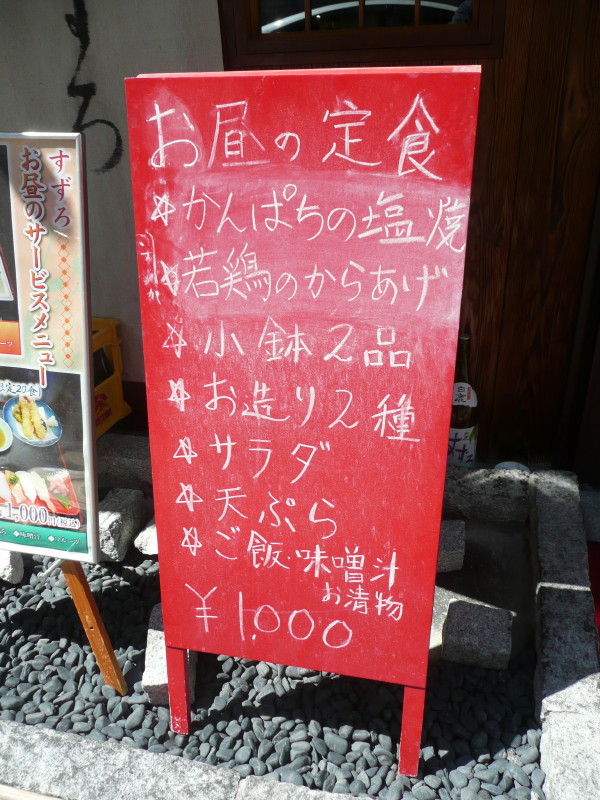 お昼の定食
☆かんぱちの塩焼
☆若鶏のからあげ
☆小鉢2品
☆お造り2種
☆サラダ
☆天ぷら
☆ご飯・味噌汁
お漬物
¥1,000
すずろ
お昼のサービスメニュー
限定20食
1,000円(税込)